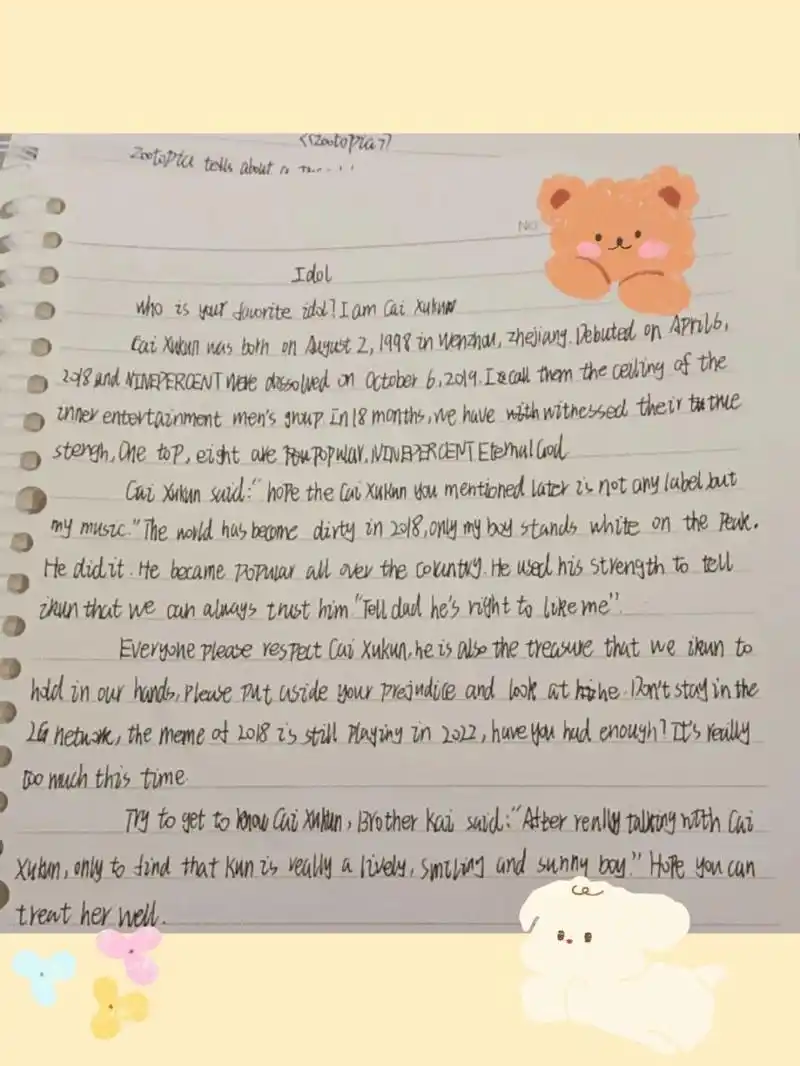 <<Zootopia>>
Zootopia tells about a
NO
Idol
Who is your favorite idol? I am Cai Xukun
Cai Xukun was both on August 2, 1998 in Wenzhou, Zhejiang. Debuted on April 6,
2018 and NINEPERCENT were dissolved on October 6, 2019. I call them the ceiling of the
inner entertainment men's group. In 18 months, we have witnessed their true
stengh, One top, eight are popular. NINEPERCENT Eternal God
Cai Xukun said: "hope the Cai Xukun you mentioned later is not any label, but
my music." The world has become dirty in 2018, only my boy stands white on the Peak.
He did it. He became popular all over the country. He used his strength to tell
ikun that we can always trust him "Tell dad he's right to like me".
Everyone please respect Cai Xukun, he is also the treasure that we ikun to
hold in our hands, please put aside your prejudice and look at he. Don't stay in the
2G network, the meme of 2018 is still playing in 2022, have you had enough? It's really
too much this time
Try to get to know Cai Xukun, Brother Kai said: "After really talking with Cai
Xukun, only to find that Kun is really a lively, smiling and sunny boy." Hope you can
treat her well.